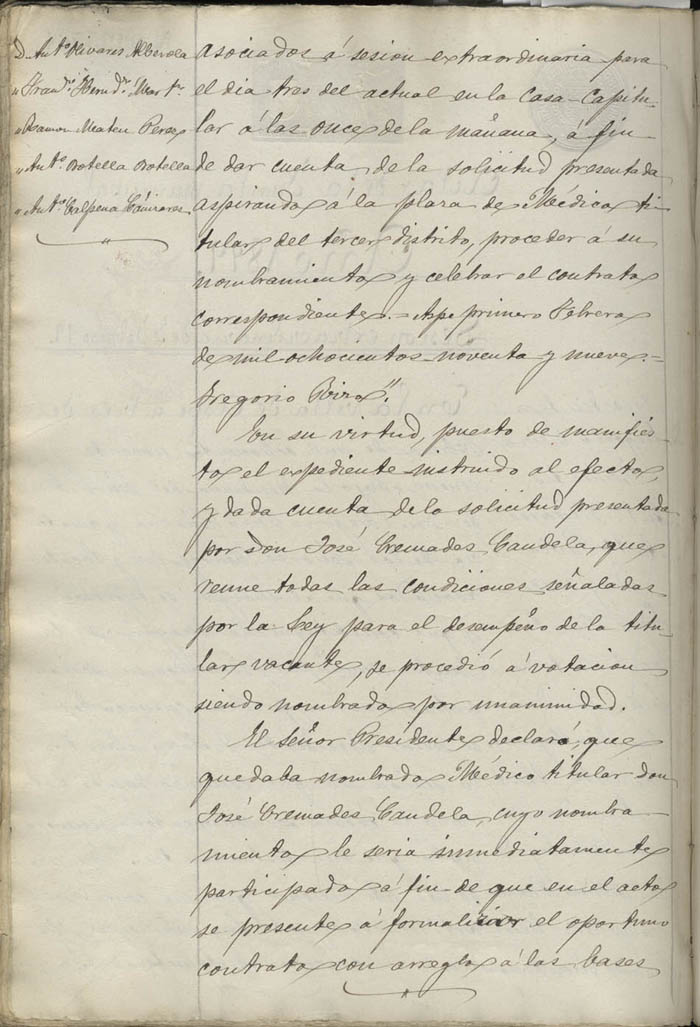 D. Ant.º Olivares Alberola
" Fran.co Hern.dez Mart.z
" Ramon Mateu Perez
" Ant.º Botella Botella
" Ant.º Calpena Cañizares
asociados á sesion extraordinaria para
el dia tres del actual en la Casa-Capitu-
lar á las once de la mañana, á fin
de dar cuenta de la solicitud presentada
aspirando á la plaza de Médico ti-
tular del tercer distrito, proceder á su
nombramiento y celebrar el contrato
correspondiente.- Aspe primero Febrero
de mil ochocientos noventa y nueve.=
Gregorio Rizo".
En su virtud, puesto de manifies-
to el expediente instruido al efecto,
y dada cuenta de la solicitud presentada
por Don José Cremades Candela, que
reune todas las condiciones señaladas
por la Ley para el desempeño de la titu-
lar vacante, se procedió á votacion
siendo nombrado por unanimidad.
El Señor Presidente declaró, que
quedaba nombrado Médico titular don
José Cremades Candela, cuyo nombra-
miento le seria inmediatamente
participado á fin de que en el acto
se presente á formalizar el oportuno
contrato con arreglo á las bases